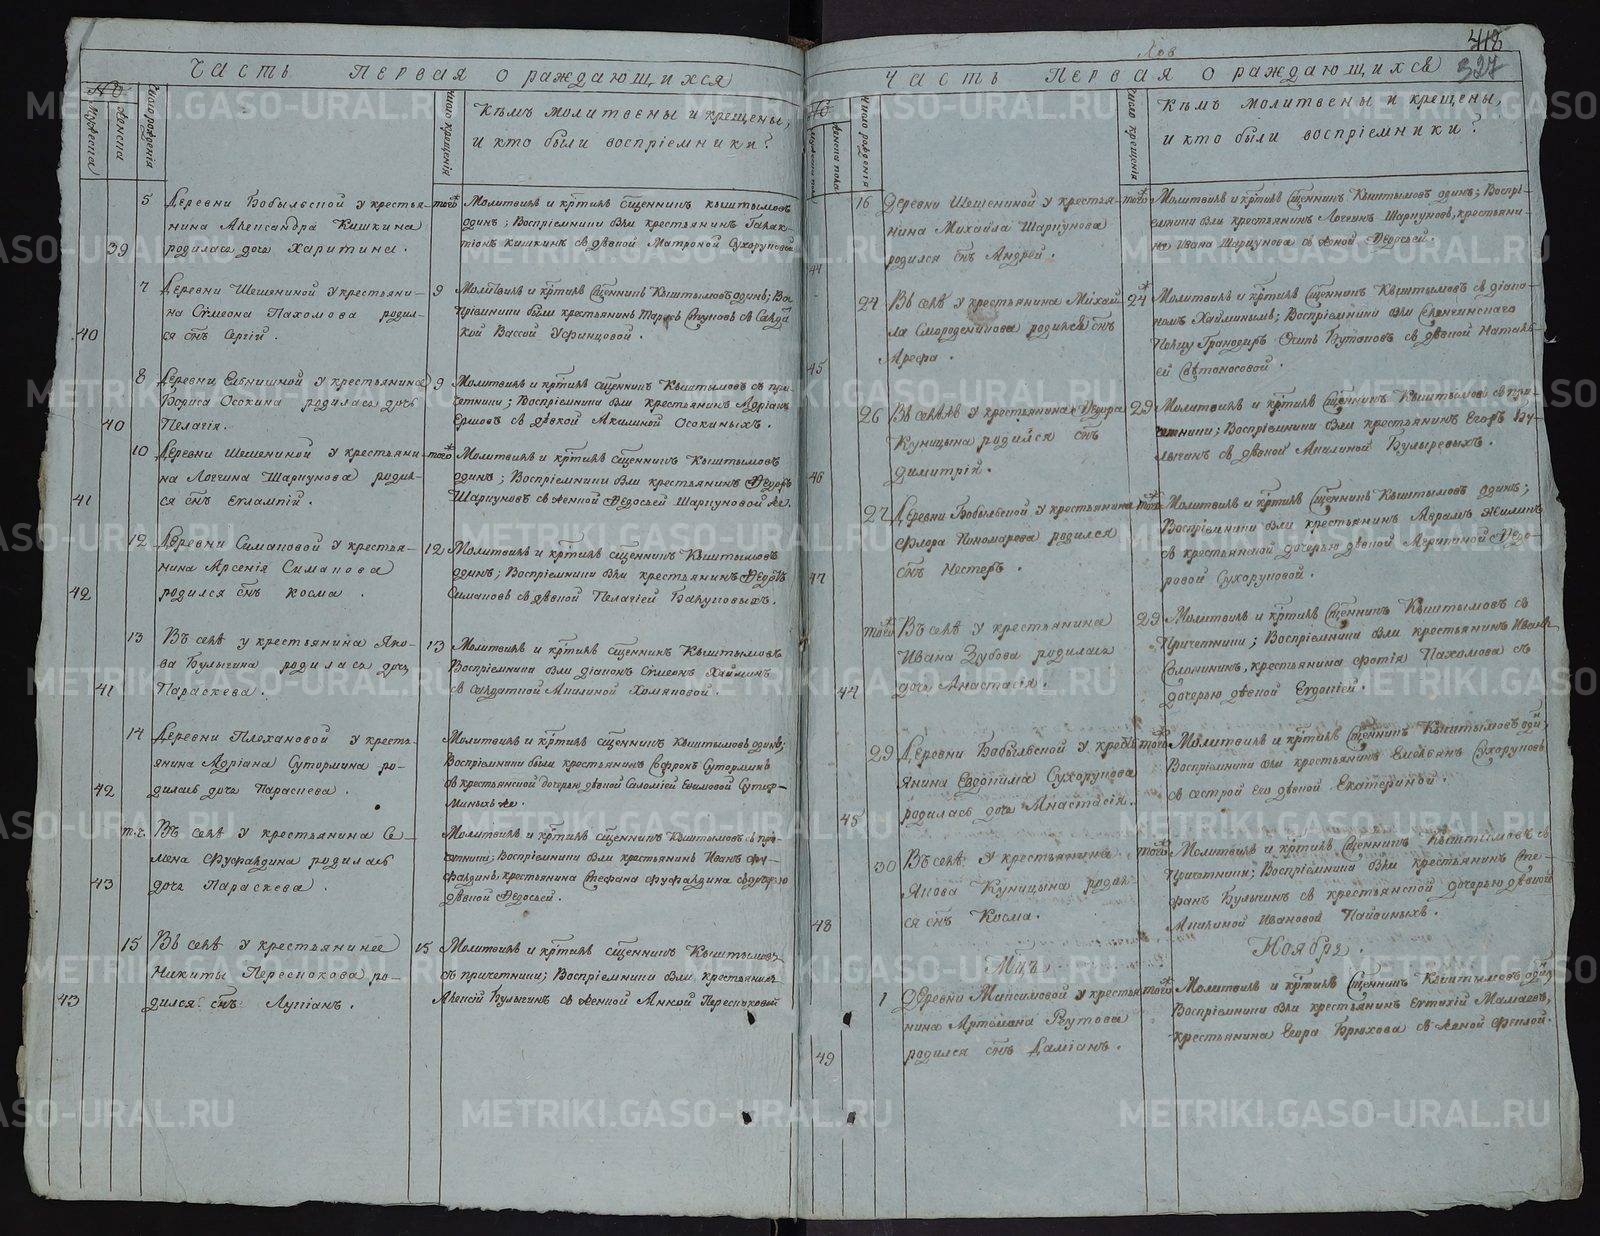 Часть первая о раждающихся
№
Мужеска
Женска
Число рожденія
Число крещенія
Къмъ молитвены и крещены,
и кто были воспріемники?
5 Деревни Бобыльской у крестья- того
нина Александра Кишкина
39 родилась дочь Харитина.
Молитвилъ и крⷭ҇тилъ сщенникъ Кыштымовъ
одинъ; Воспріемники были крестьянинъ Галак-
тіонъ Кишкинъ съ дѣвкой Матроной Сухоруковой
7 Деревни Шешениной у крестьяни- 9
на Сѵмеона Пахомова родил-
40 ся сн҃ъ Сергій.
Молитвилъ и крⷭ҇тилъ сщенникъ Кыштымовъ одинъ; Во-
пріемники были крестьянинъ Тарасъ
кой Вассой Уфинцовой.
8 Деревни у крестьянина 9
Бориса Осокина родилась дочь
40 Пелагія.
Молитвилъ и крⷭ҇тилъ сщенникъ Кыштымовъ съ при-
четники; Воспріемники были крестьянинъ Адріанъ
Ершовъ съ дѣвкой Акилиной Осокиныхъ.
10 Деревни Шешениной у крестьяни- того
на Логгина Шарпунова родил-
41 ся сн҃ъ Евлампій.
Молитвилъ и крⷭ҇тилъ сщенникъ Кыштымовъ
одинъ; Воспріемники были крестьянинъ Ѳедоръ
Шарпуновъ съ женкой Ѳедосьей Шарпуновой же.
12 Деревни Симановой у крестья- 12
нина Арсенія Симанова
42 родился сн҃ъ Косма.
Молитвилъ и крⷭ҇тилъ сщенникъ Кыштымовъ
одинъ; Воспріемники были крестьянинъ Ѳедотъ
Симановъ съ дѣвкой Пелагіей Бакуновыхъ.
13 Въ селѣ у крестьянина Яко- 13
ва Булыгина родилась дочь
41 Параскева.
Молитвилъ и крⷭ҇тилъ сщенникъ Кыштымовъ
Воспріемники были діаконъ Сѵмеонъ Хайминъ
съ солдаткой Акилиной Хомяковой.
14 Деревни Плехановой у кресть-
янина Адріана Сутормина ро-
42 дилась дочь Параскева.
Молитвилъ и крⷭ҇тилъ сщенникъ Кыштымовъ одинъ;
Воспріемники были крестьянинъ Софронъ Суторминъ
съ крестьянской дочерью дѣвкой Саломіей Ефимовой Сутор-
миныхъ же.
т.ч. Въ селѣ у крестьянина Се-
мена Фуфалдина родилась
43 дочь Параскева.
Молитвилъ и крⷭ҇тилъ сщенникъ Кыштымовъ съ при-
четники; Воспріемники были крестьянинъ Иванъ Фу-
фалдинъ, крестьянина Стефана Фуфалдина съ дочерью
дѣвкой Ѳедосьей.
15 Въ селѣ у крестьянинее 15
Никиты Переснокова ро-
43 дился сн҃ъ Лупіанъ.
Молитвилъ и крⷭ҇тилъ сщенникъ Кыштымовъ
съ причетники; Воспріемники были крестьянинъ
Алексій Булыгинъ съ женкой Анной
418
327
Часть первая о раждающихся
№
мужеска пола
женска пола
Число рожденія
Число крещенія
Къмъ молитвены и крещены,
и кто были воспріемники?
16 Деревни Шешениной у крестья- того
нина Михайла Шарпунова
44 родился сн҃ъ Андрей.
Молитвилъ и крⷭ҇тилъ сщенникъ Кыштымовъ одинъ; Воспрі-
емники были крестьянинъ Логинъ Шарпуновъ, крестьяни-
на Ивана Шарпунова съ женой Ѳедосьей.
24 Въ селѣ у крестьянина Михай- 24
ла Смороденикова родился сн҃ъ
45 Арефа.
Молитвилъ и крⷭ҇тилъ сщенникъ Кыштымовъ съ діако-
номъ Хайминымъ; Воспріемники были
Полку Гранодиръ Осипъ Бутаковъ съ дѣвкой Наталь-
ей Свѣтоносовой.
26 Въ селѣ у крестьянина Ѳедора 29
Куницына родился сн҃ъ
46 Димитрій.
Молитвилъ и крⷭ҇тилъ сщенникъ Кыштымовъ съ при-
четники; Воспріемники были крестьянинъ Егоръ Бу-
лыгинъ съ дѣвкой Акилиной Булыревыхъ.
27 Деревни Бобыльской у крестьянина того
Флора Пономарева родился
47 сн҃ъ Нестеръ.
Молитвилъ и крⷭ҇тилъ сщенникъ Кыштымовъ одинъ;
Воспріемники были крестьянинъ Аврамъ Жилинъ
съ крестьянской дочерью дѣвкой Мариной Ѳедо-
ровой Сухоруковой.
того Въ селѣ у крестьянина 29
Ивана Зубова родилась
44 дочь Анастасія.
Молитвилъ и крⷭ҇тилъ сщенникъ Кыштымовъ съ
Причетники; Воспріемники были крестьянинъ Иванъ
Солонинъ, крестьянина Фотія Пахомова съ
дочерью дѣвкой Евдокіей.
29 Деревни Бобыльской у кресть- того
янина Евдокима Сухорукова
45 родилась дочь Анастасія.
Молитвилъ и крⷭ҇тилъ сщенникъ Кыштымовъ один;
Воспріемники были крестьянинъ Емельянъ Сухоруковъ
съ сестрой его дѣвкой Екатериной.
30 Въ селѣ у крестьянина того
Якова Куницына родил-
48 ся сн҃ъ Косма.
Молитвилъ и крⷭ҇тилъ сщенникъ Кыштымовъ съ
Причетники; Воспріемники были крестьянинъ Сте-
фанъ Булыгинъ съ крестьянской дочерью дѣвкой
Акилиной Ивановой Пайвиныхъ.
Мц҃ъ Ноябрь.
1 Деревни Максимовой у крестья- того
нина Артемана Реутова
49 родился сн҃ъ Даміанъ.
Молитвилъ и крⷭ҇тилъ сщенникъ Кыштымовъ один;
Воспріемники были крестьянинъ Евтихій Мамаевъ,
крестьянина Егора Брюхова съ женой Феклой.
METRIKI.GASO-URAL.RU